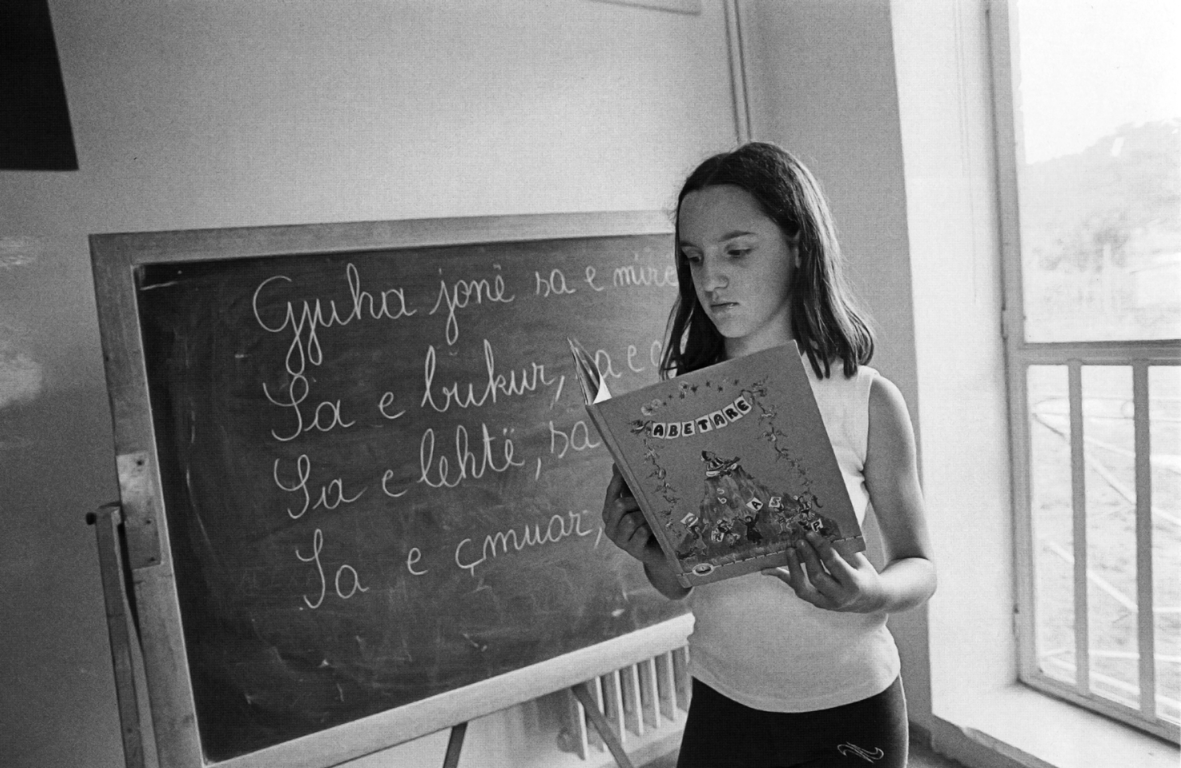 Gjuha jonë sa e mirë
Sa e bukur, sa e
Sa e lehtë, sa
Sa e çmuar,
ABETARE